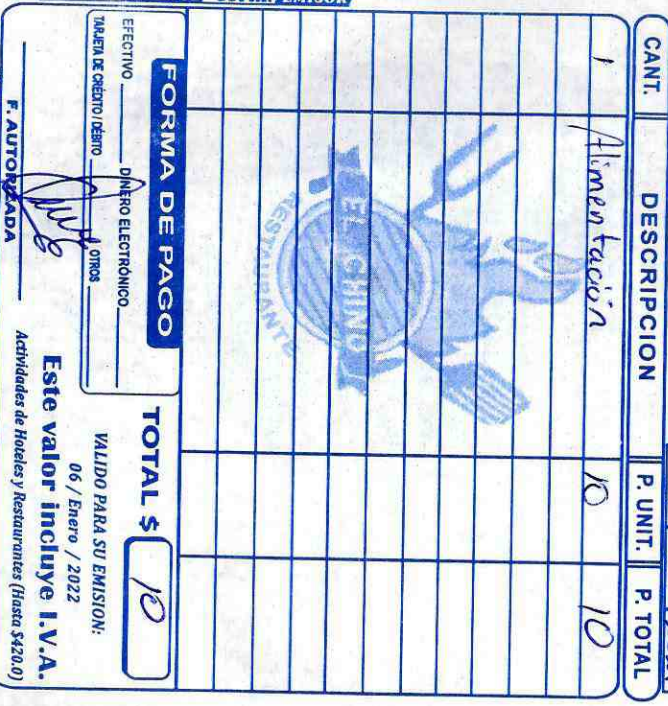 CANT. DESCRIPCION P. UNIT. P. TOTAL
1 Alimentación 10 10
EL CHINO
RESTAURANTE
FORMA DE PAGO
EFECTIVO DINERO ELECTRÓNICO
TARJETA DE CRÉDITO / DÉBITO OTROS
F. AUTORIZADA
TOTAL $ 10
VALIDO PARA SU EMISION:
06 / Enero / 2022
Este valor incluye I.V.A.
Actividades de Hoteles y Restaurantes (Hasta $420.0)